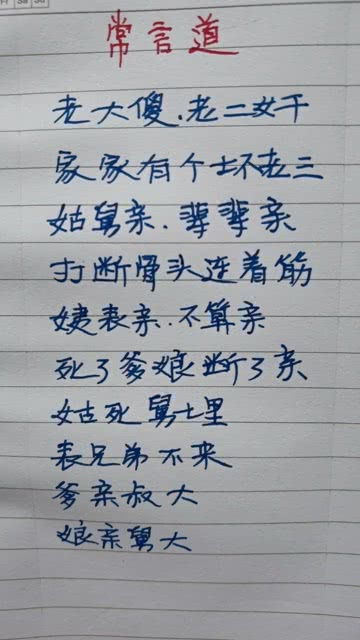 Fr Sa Su
常言道
老大傻.老二奸
家家有个坏老三
姑舅亲.辈辈亲
打断骨头连着筋
姨表亲.不算亲
死了爹娘断了亲
姑死舅土里
表兄弟不来
爹亲叔大
娘亲舅大